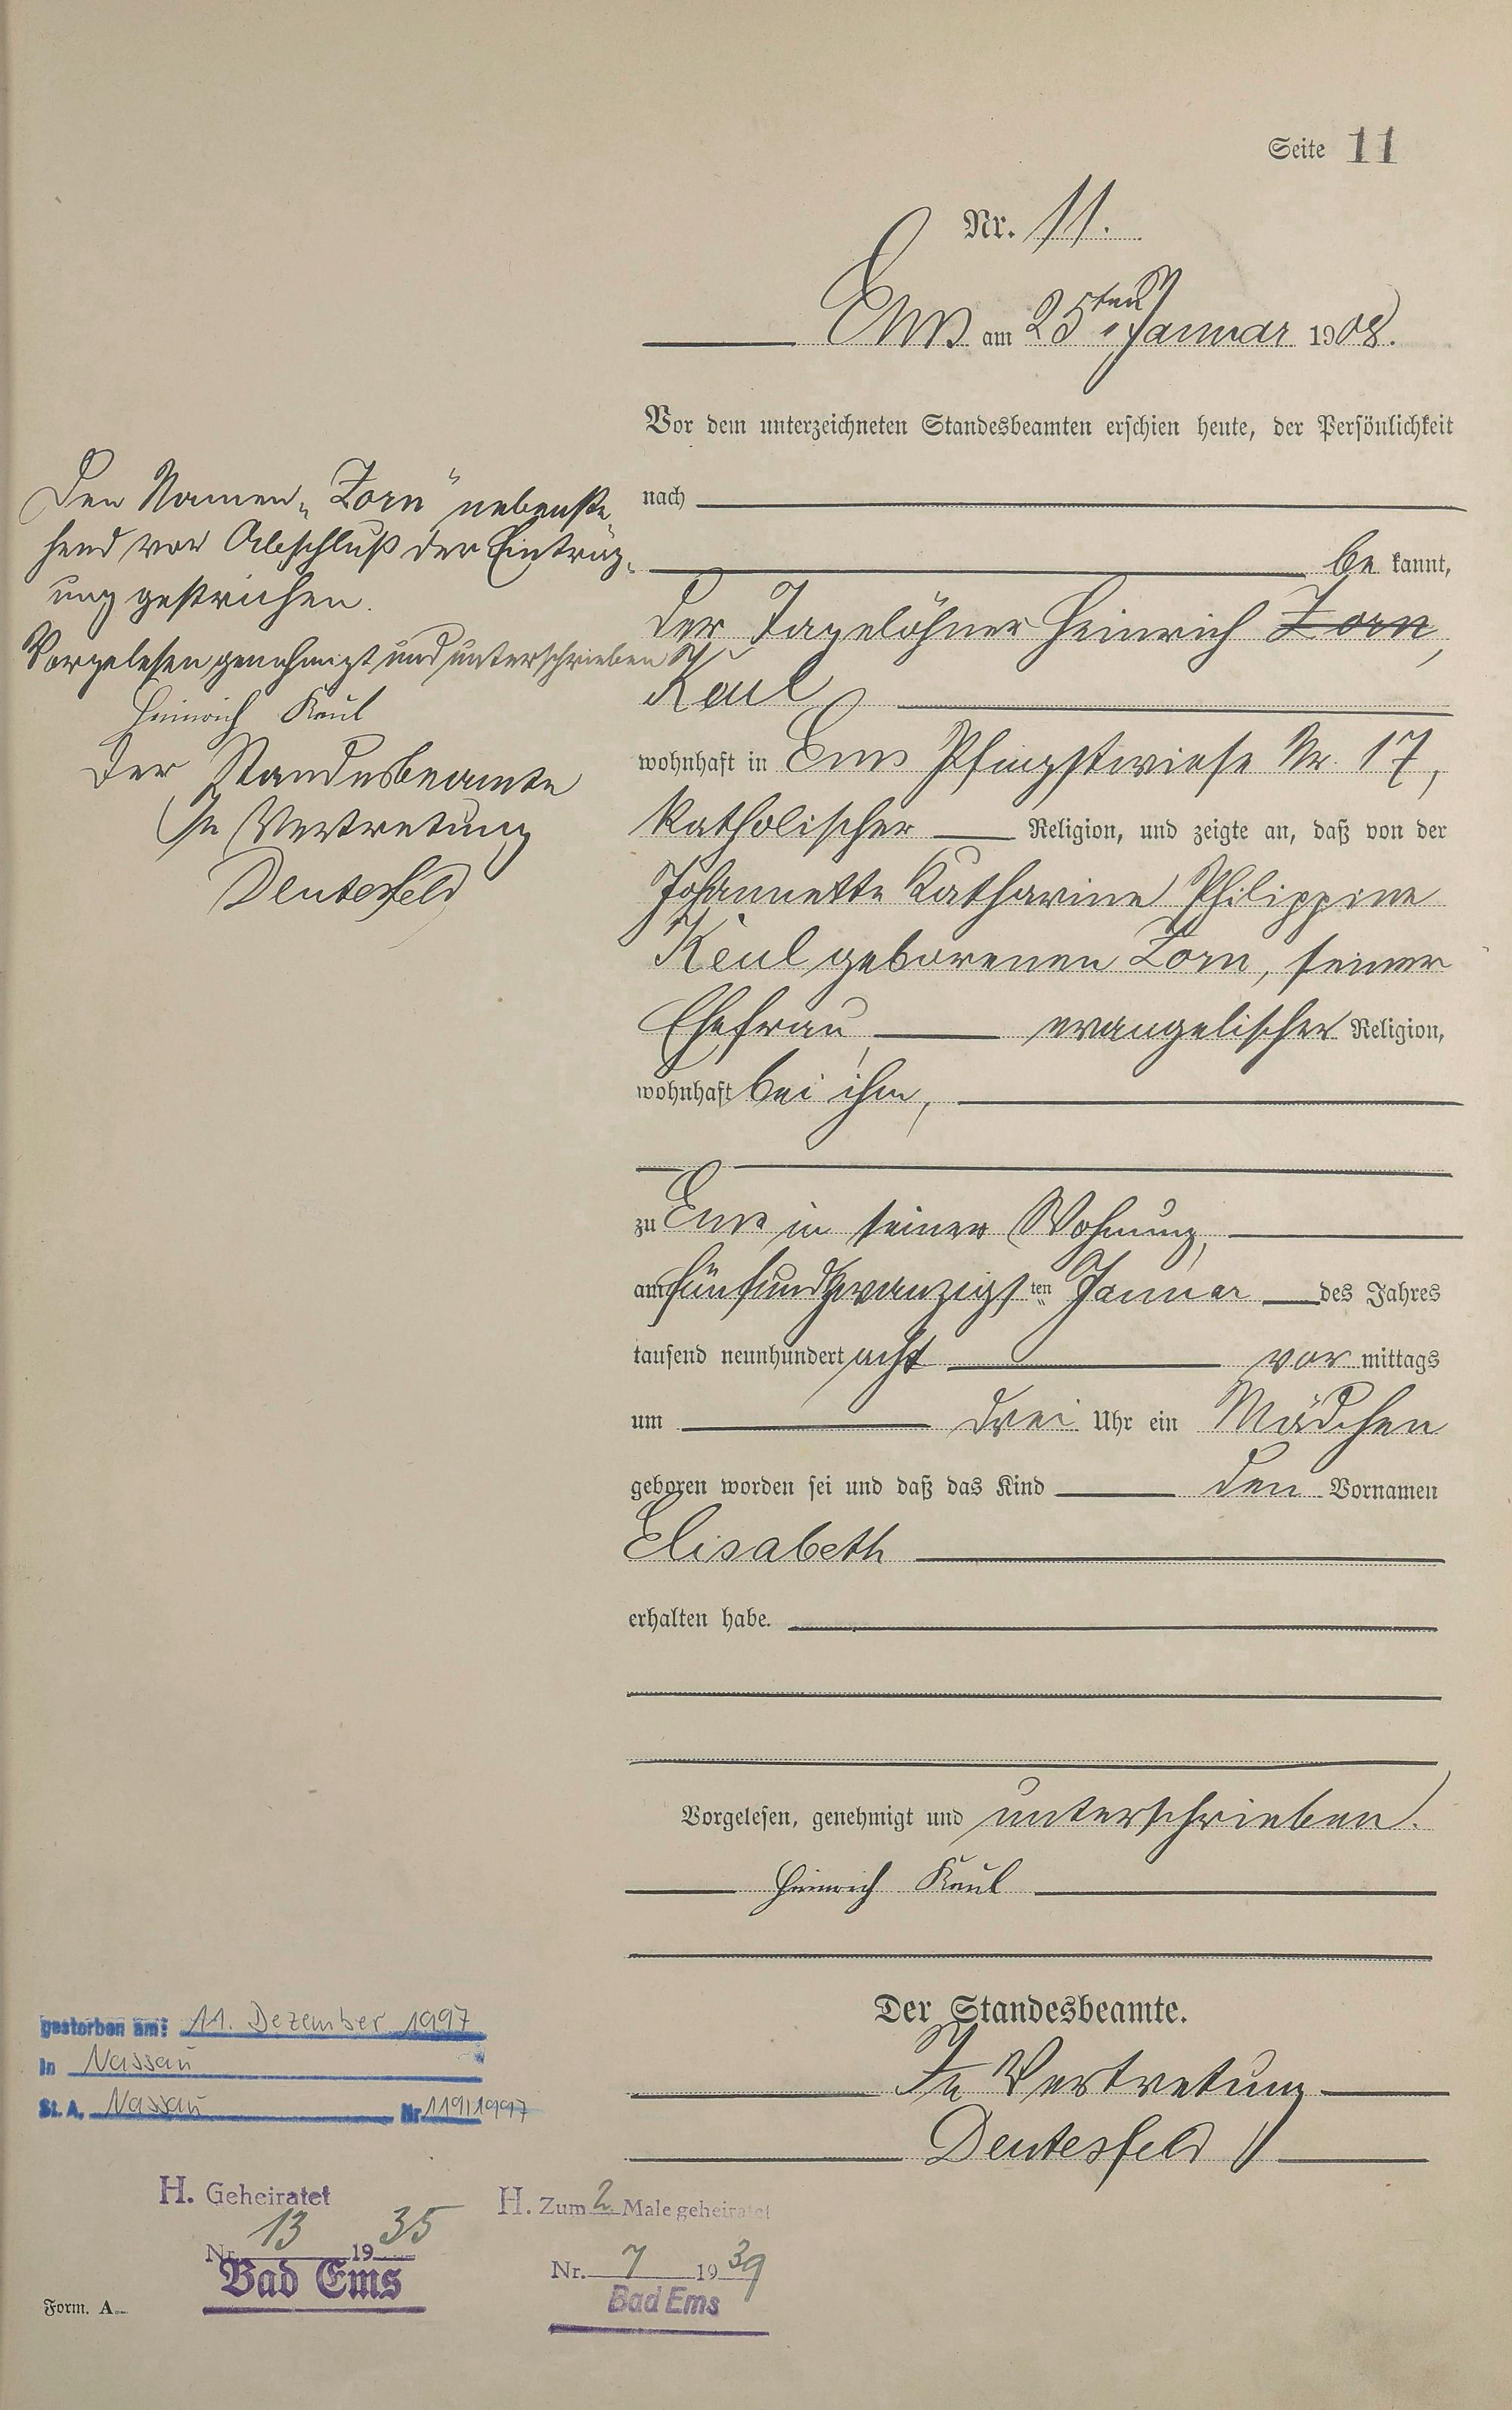 Seite 11
Nr. 11.
Ems am 25ten Januar 1908.
Vor dem unterzeichneten Standesbeamten erschien heute, der Persönlichkeit
nach
be kannt,
der Tagelöhner Heinrich Zorn,
Keul
wohnhaft in Ems Pfingstwiese Nr. 17,
katholischer Religion, und zeigte an, daß von der
Johannette Katharine Philippine
Keul geborenen Zorn, seiner
Ehefrau, evangelischer Religion,
wohnhaft bei ihm,
zu Ems in seiner Wohnung,
am fünfundzwanzigsten Januar des Jahres
tausend neunhundert acht vor mittags
um drei Uhr ein Mädchen
geboren worden sei und daß das Kind den Vornamen
Elisabeth
erhalten habe.
Vorgelesen, genehmigt und unterschrieben.
Heinrich Keul
Der Standesbeamte.
In Vertretung
Deutesfeld
Den Namen „Zorn" nebenste-
hend vor Abschluß der Eintrag-
ung gestrichen.
Vorgelesen, genehmigt und unterschrieben
Heinrich Keul
Der Standesbeamte
In Vertretung
Deutesfeld
gestorben am: 11. Dezember 1997
in Nassau
St. A. Nassau Nr. 119/1997
H. Geheiratet
Nr. 13 1935
Bad Ems
H. Zum 2. Male geheiratet
Nr. 7 1939
Bad Ems
Form. A.